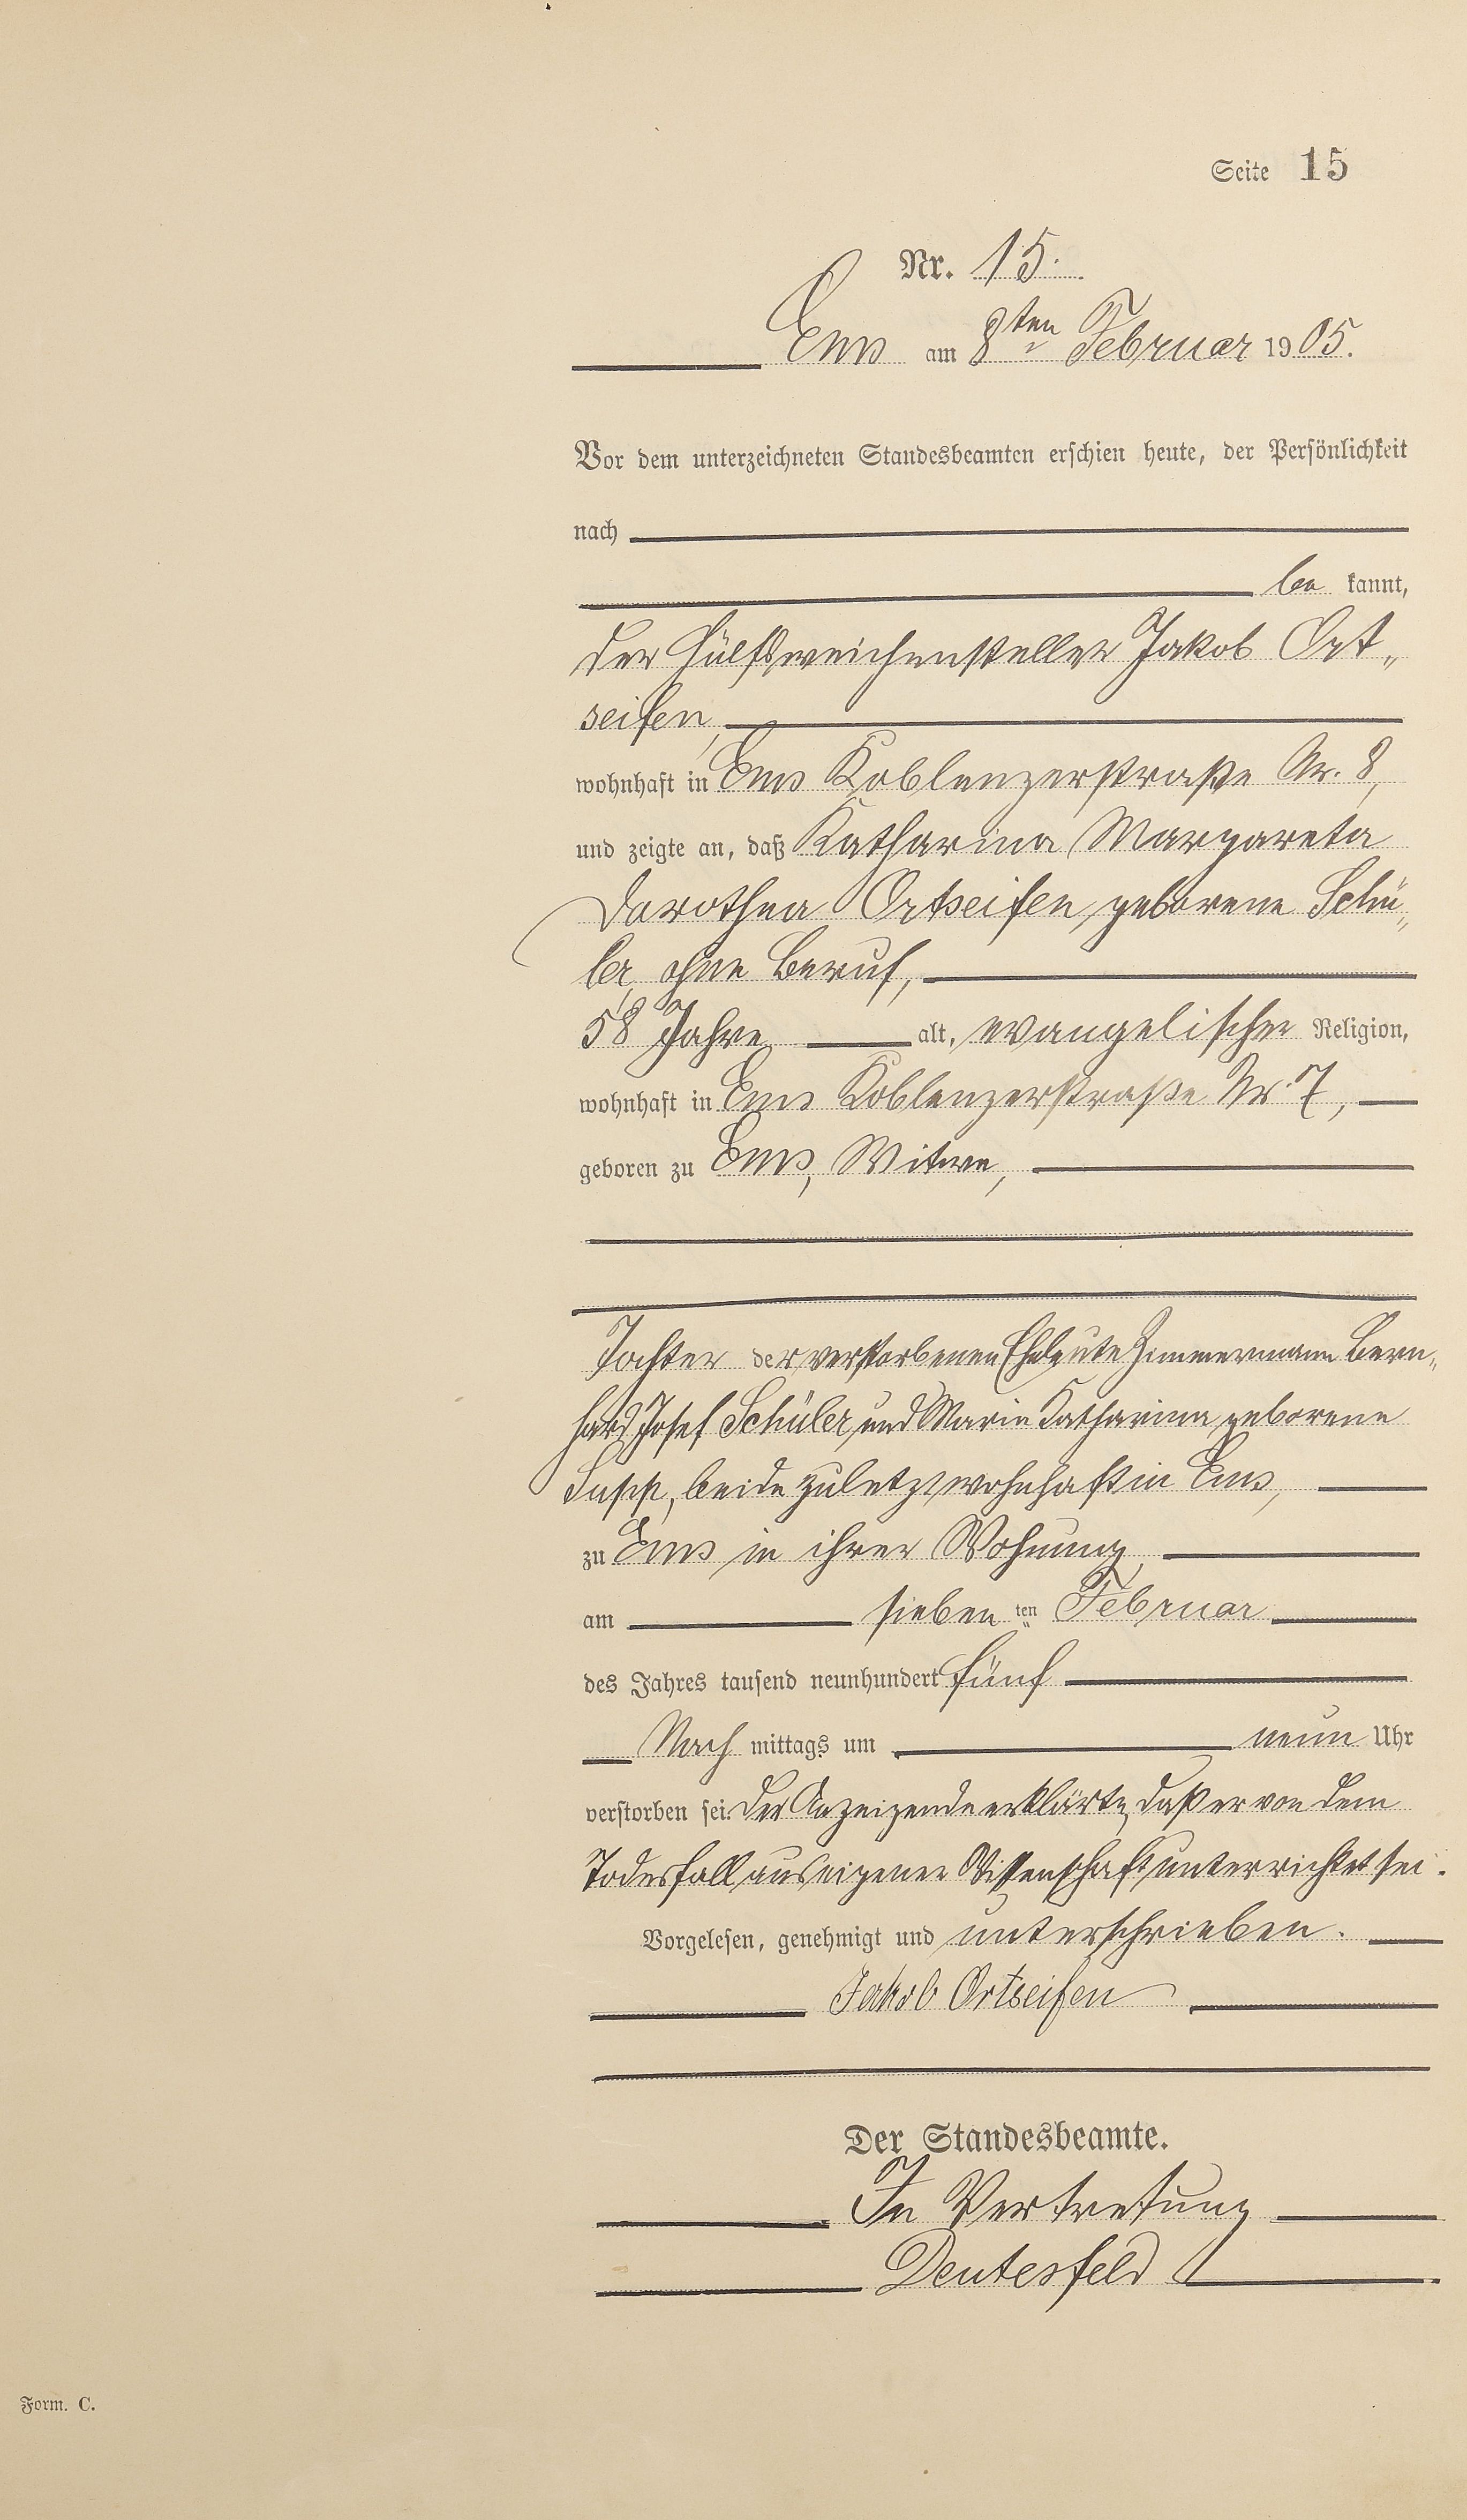 Seite 15
Nr. 15.
Ems am 8ten Februar 1905.
Vor dem unterzeichneten Standesbeamten erschien heute, der Persönlichkeit
nach
be kannt,
der Hülfsweichensteller Jakob Ort„
seifen,
wohnhaft in Ems Koblenzerstraße Nr. 8,
und zeigte an, daß Katharina Margareta
Dorothea Ortseifen, geborene Schü„
ler, ohne Beruf,
58 Jahre alt, evangelischer Religion,
wohnhaft in Ems Koblenzerstraße Nr. 7,
geboren zu Ems, Witwe,
Tochter der verstorbenen Eheleute Zimmermann Bern„
hard Josef Schüler und Maria Katharina geborene
beide zuletzt wohnhaft in Ems,
zu Ems in ihrer Wohnung,
am sieben ten Februar
des Jahres tausend neunhundert fünf
Nach mittags um neun Uhr
verstorben sei. Der Anzeigende erklärte, daß er von dem
Todesfall aus eigener Wissenschaft unterrichtet sei.
Vorgelesen, genehmigt und unterschrieben.
Jakob Ortseifen
Der Standesbeamte.
In Vertretung
Deutesfeld
Form. C.